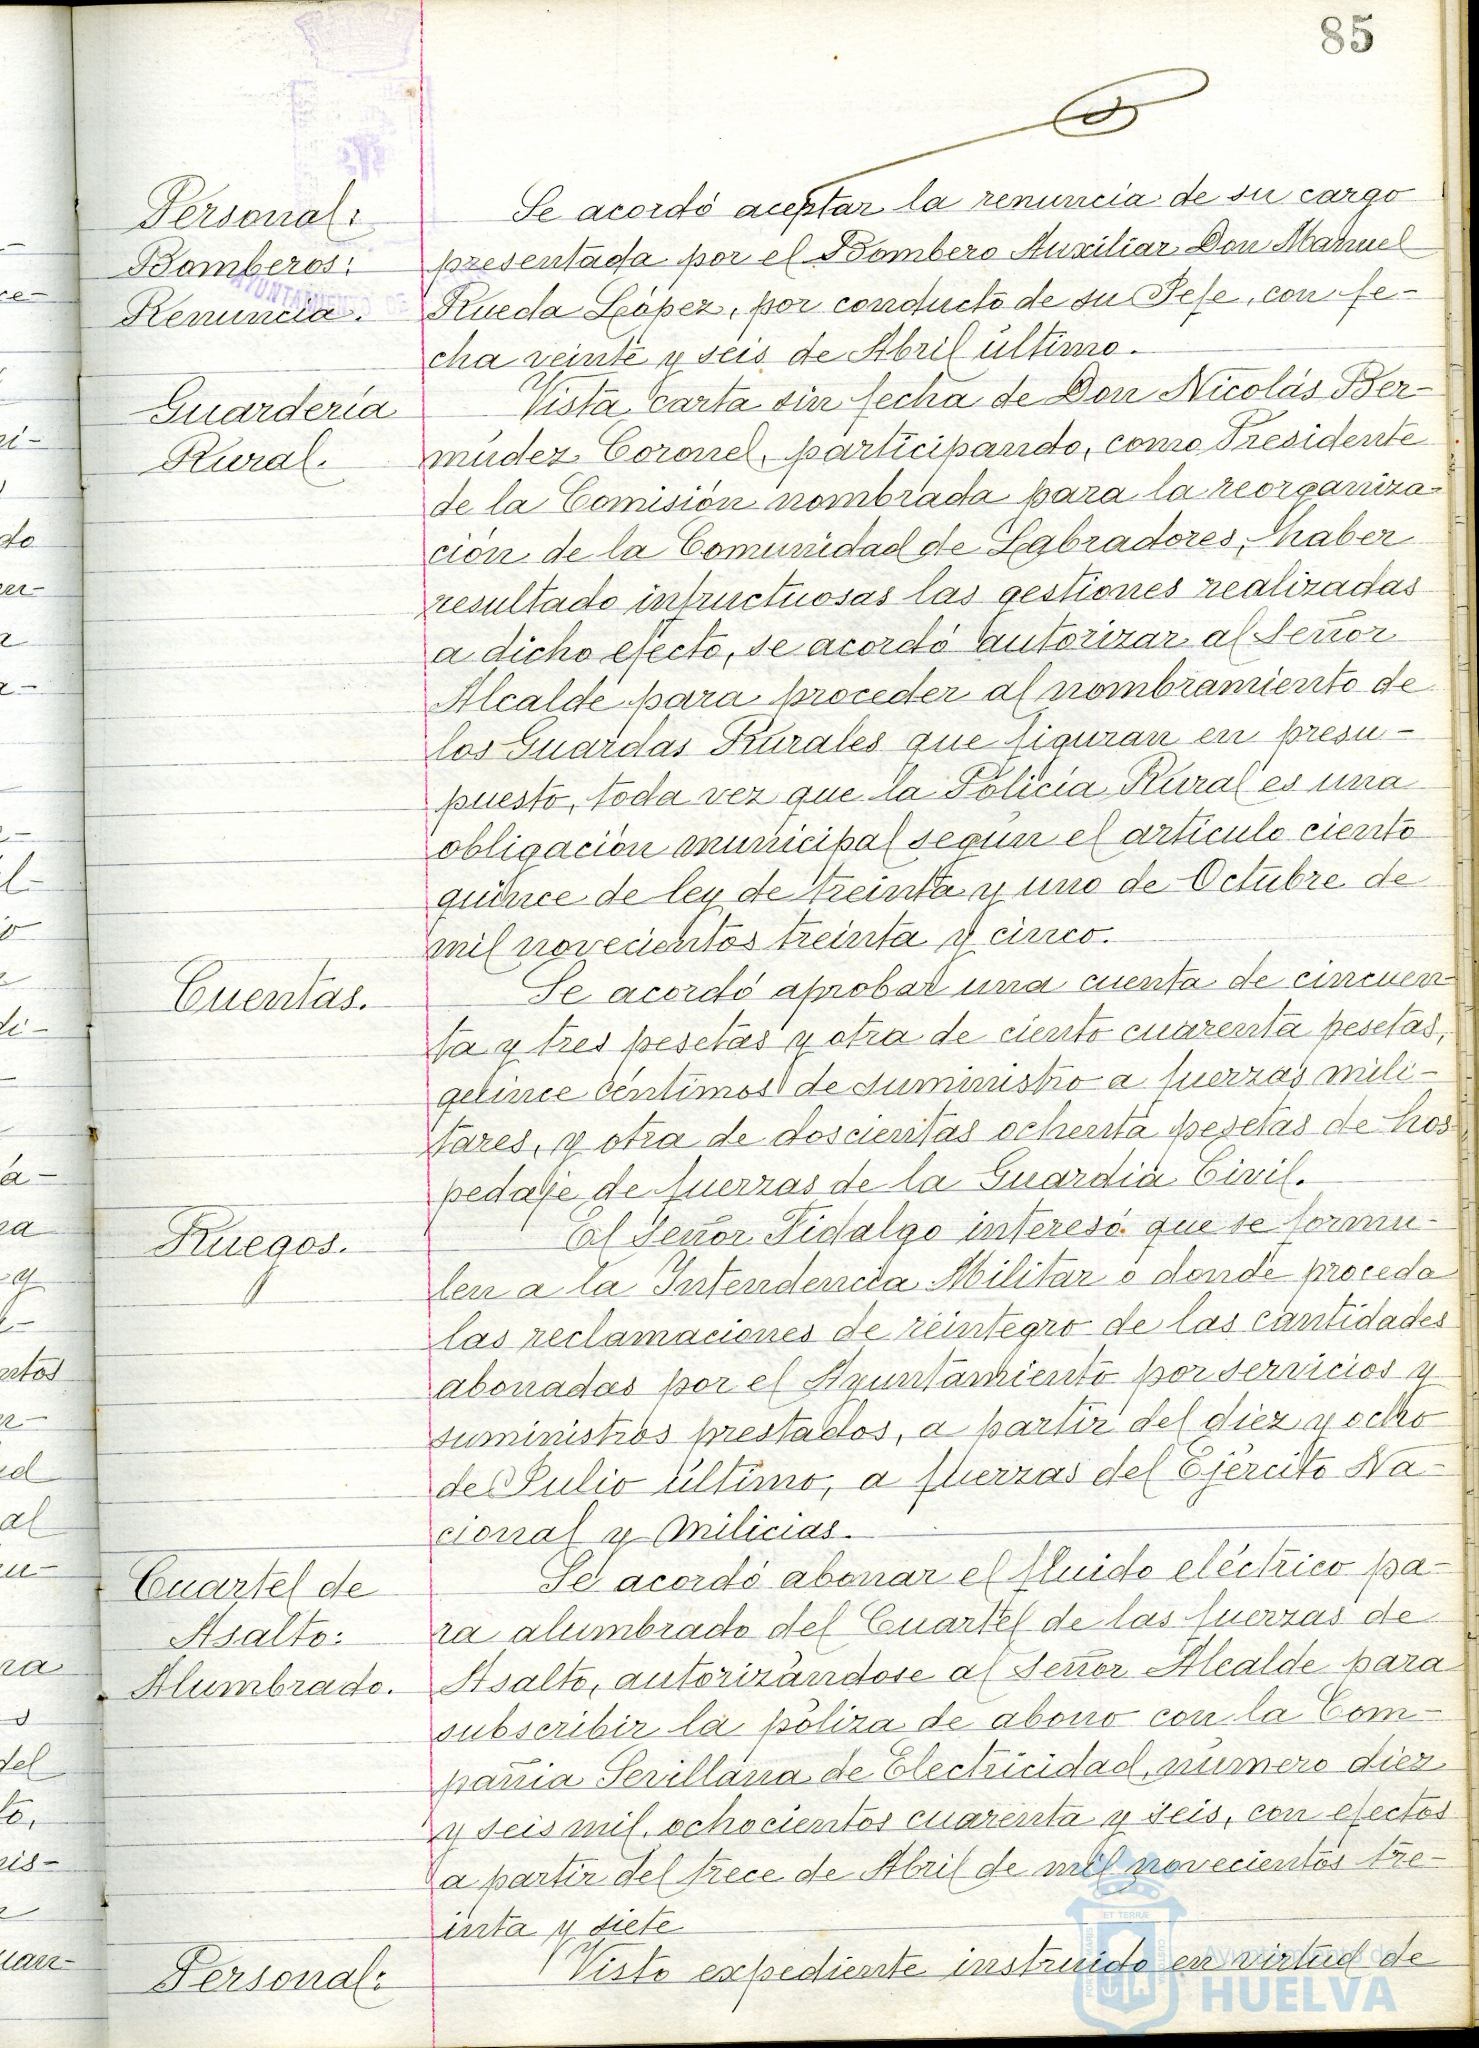 85
Personal:
Bomberos:
Renuncia.
Se acordó aceptar la renuncia de su cargo
presentada por el Bombero Auxiliar Don Manuel
Rueda López, por conducto de su Jefe, con fe-
cha veinte y seis de Abril último.
Guardería
Rural.
Vista carta sin fecha de Don Nicolás Ber-
múdez Coronel, participando, como Presidente
de la Comisión nombrada para la reorganiza-
ción de la Comunidad de Labradores, haber
resultado infructuosas las gestiones realizadas
a dicho efecto, se acordó autorizar al Señor
Alcalde para proceder al nombramiento de
los Guardas Rurales que figuran en presu-
puesto, toda vez que la Policía Rural es una
obligación municipal según el artículo ciento
quince de ley de treinta y uno de Octubre de
mil novecientos treinta y cinco.
Cuentas.
Se acordó aprobar una cuenta de cincuen-
ta y tres pesetas y otra de ciento cuarenta pesetas,
quince céntimos de suministro a fuerzas mili-
tares, y otra de doscientas ochenta pesetas de hos-
pedaje de fuerzas de la Guardia Civil.
Ruegos.
El Señor Fidalgo interesó que se formu-
len a la Intendencia Militar o donde proceda
las reclamaciones de reintegro de las cantidades
abonadas por el Ayuntamiento por servicios y
suministros prestados, a partir del diez y ocho
de Julio último, a fuerzas del Ejército Na-
cional y Milicias.
Cuartel de
Asalto:
Alumbrado.
Se acordó abonar el fluido eléctrico pa-
ra alumbrado del Cuartel de las fuerzas de
Asalto, autorizándose al Señor Alcalde para
subscribir la póliza de abono con la Com-
pañia Sevillana de Electricidad, número diez
y seis mil ochocientos cuarenta y seis, con efectos
a partir del trece de Abril de mil novecientos tre-
inta y siete
Personal:
Visto expediente instruido en virtud de
Ayuntamiento de
HUELVA